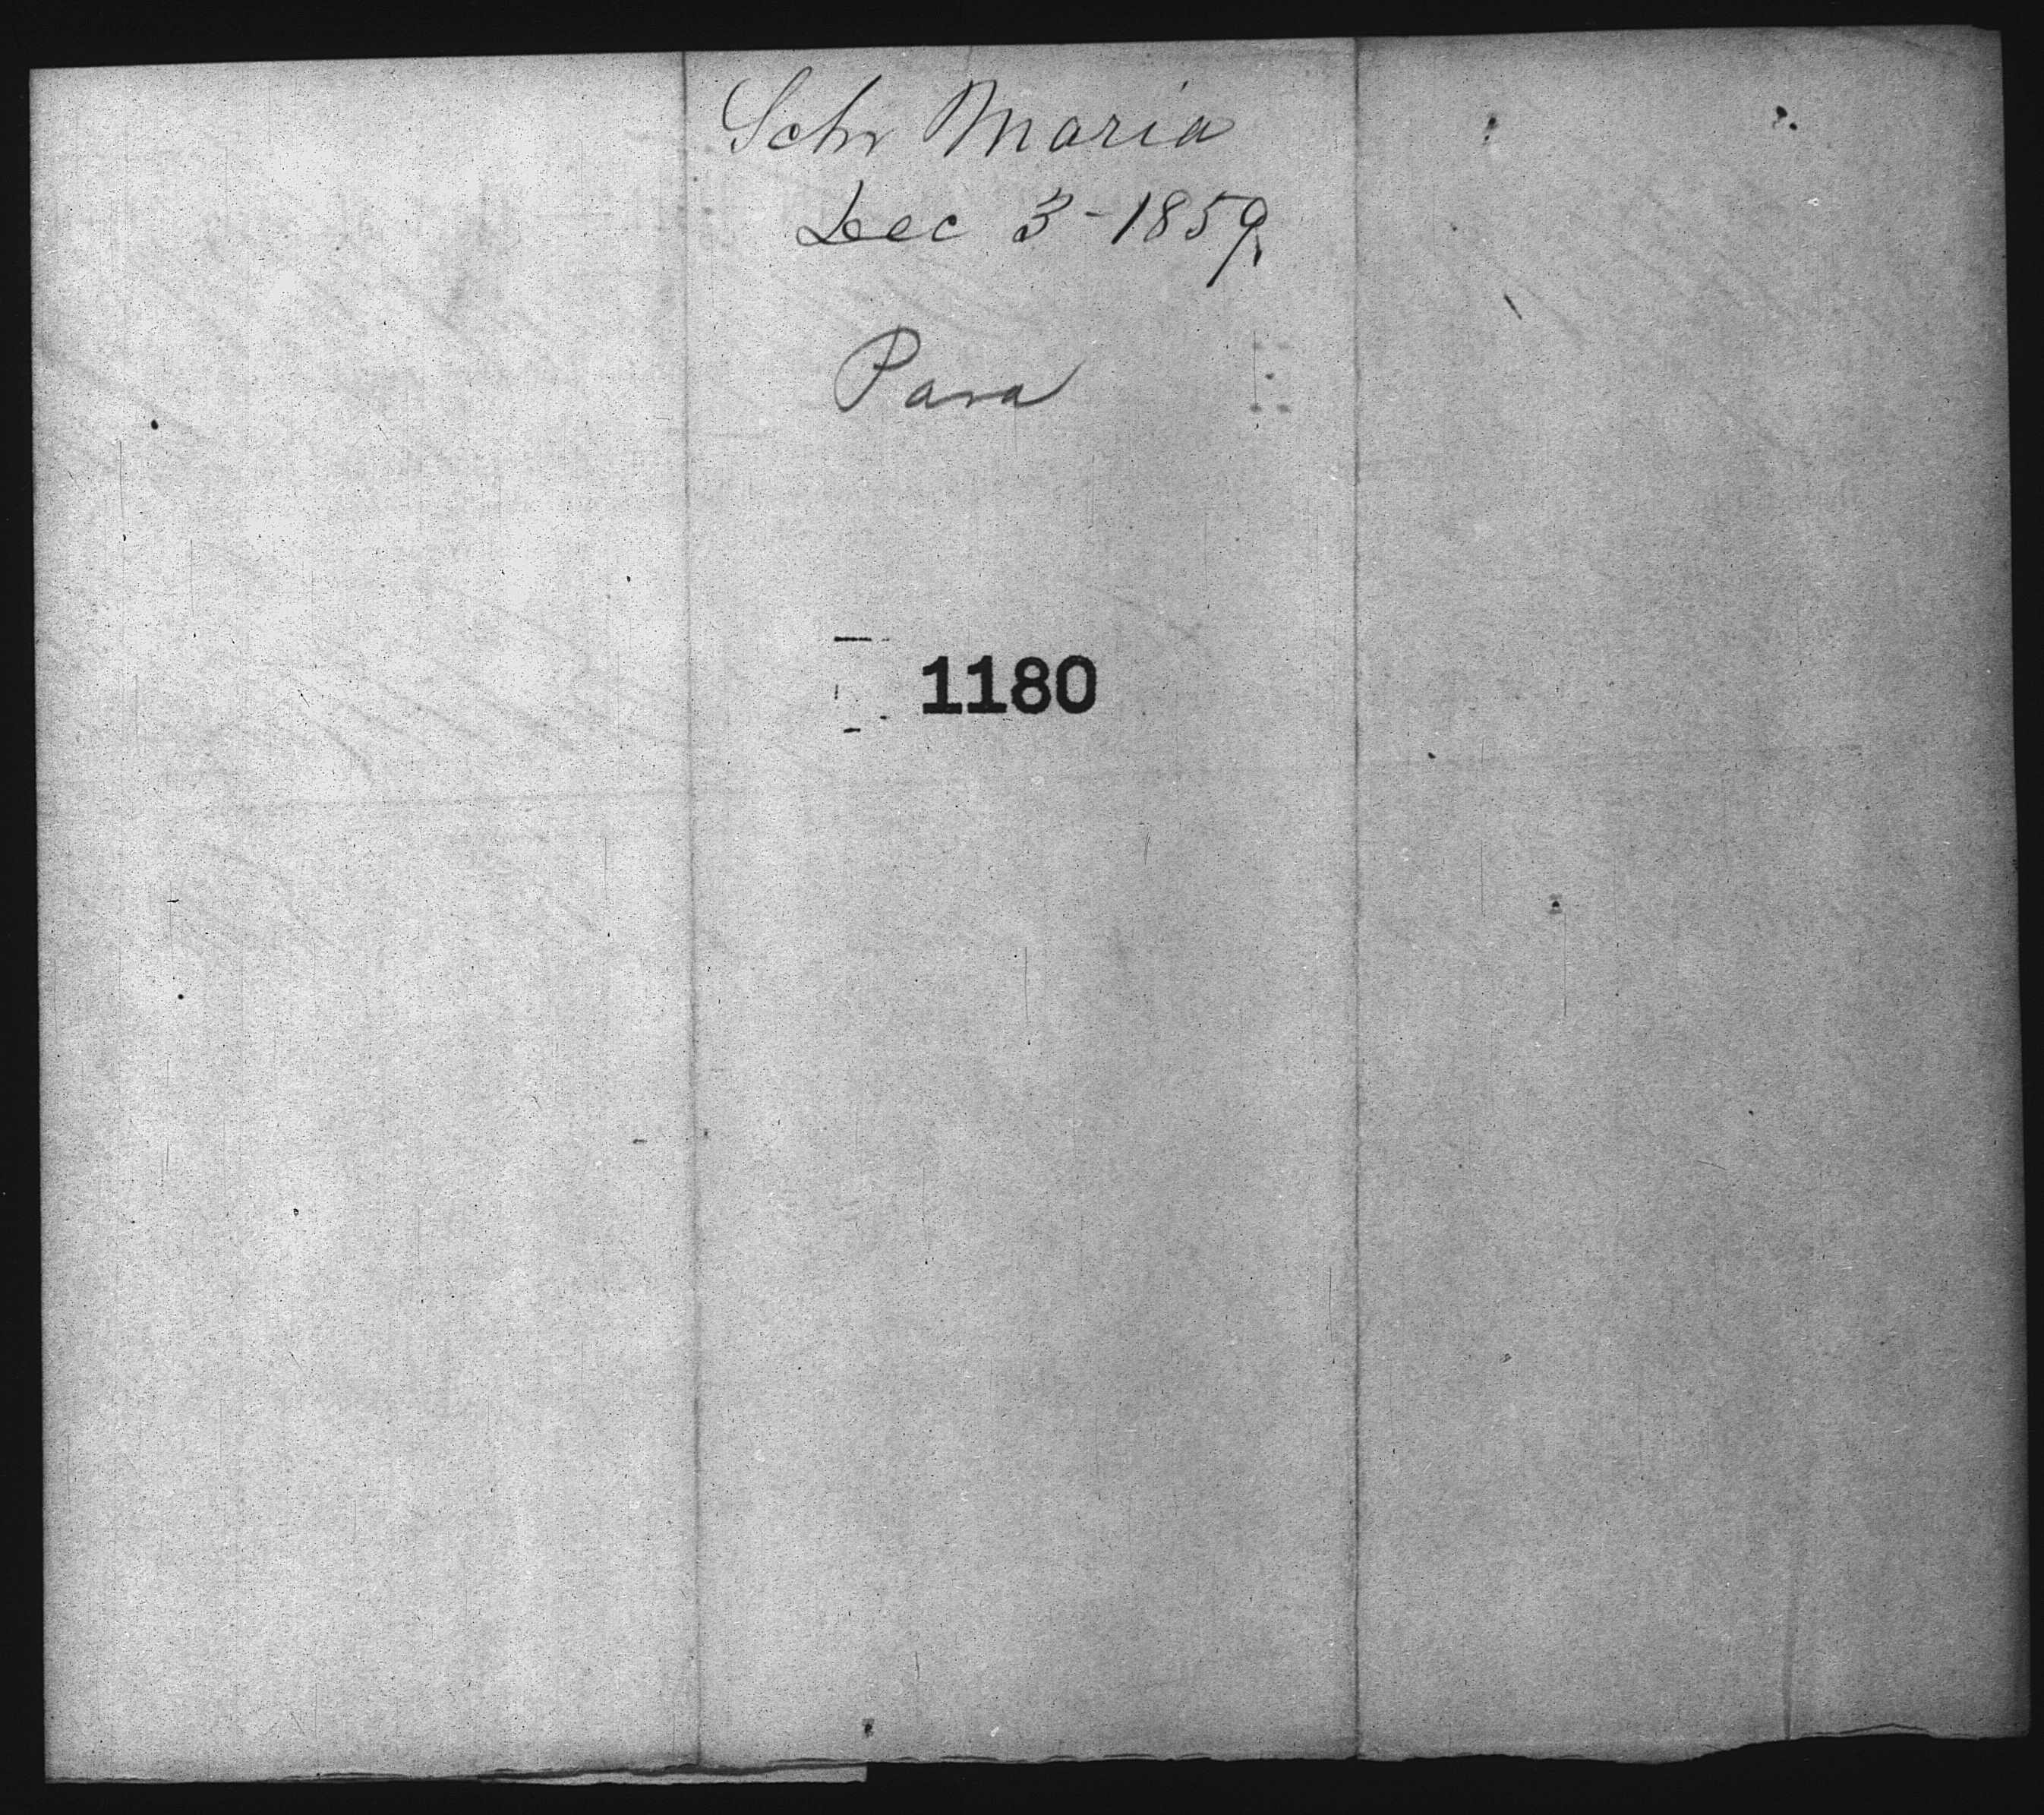 Schr Maria
Dec 3-1859
Para
1180